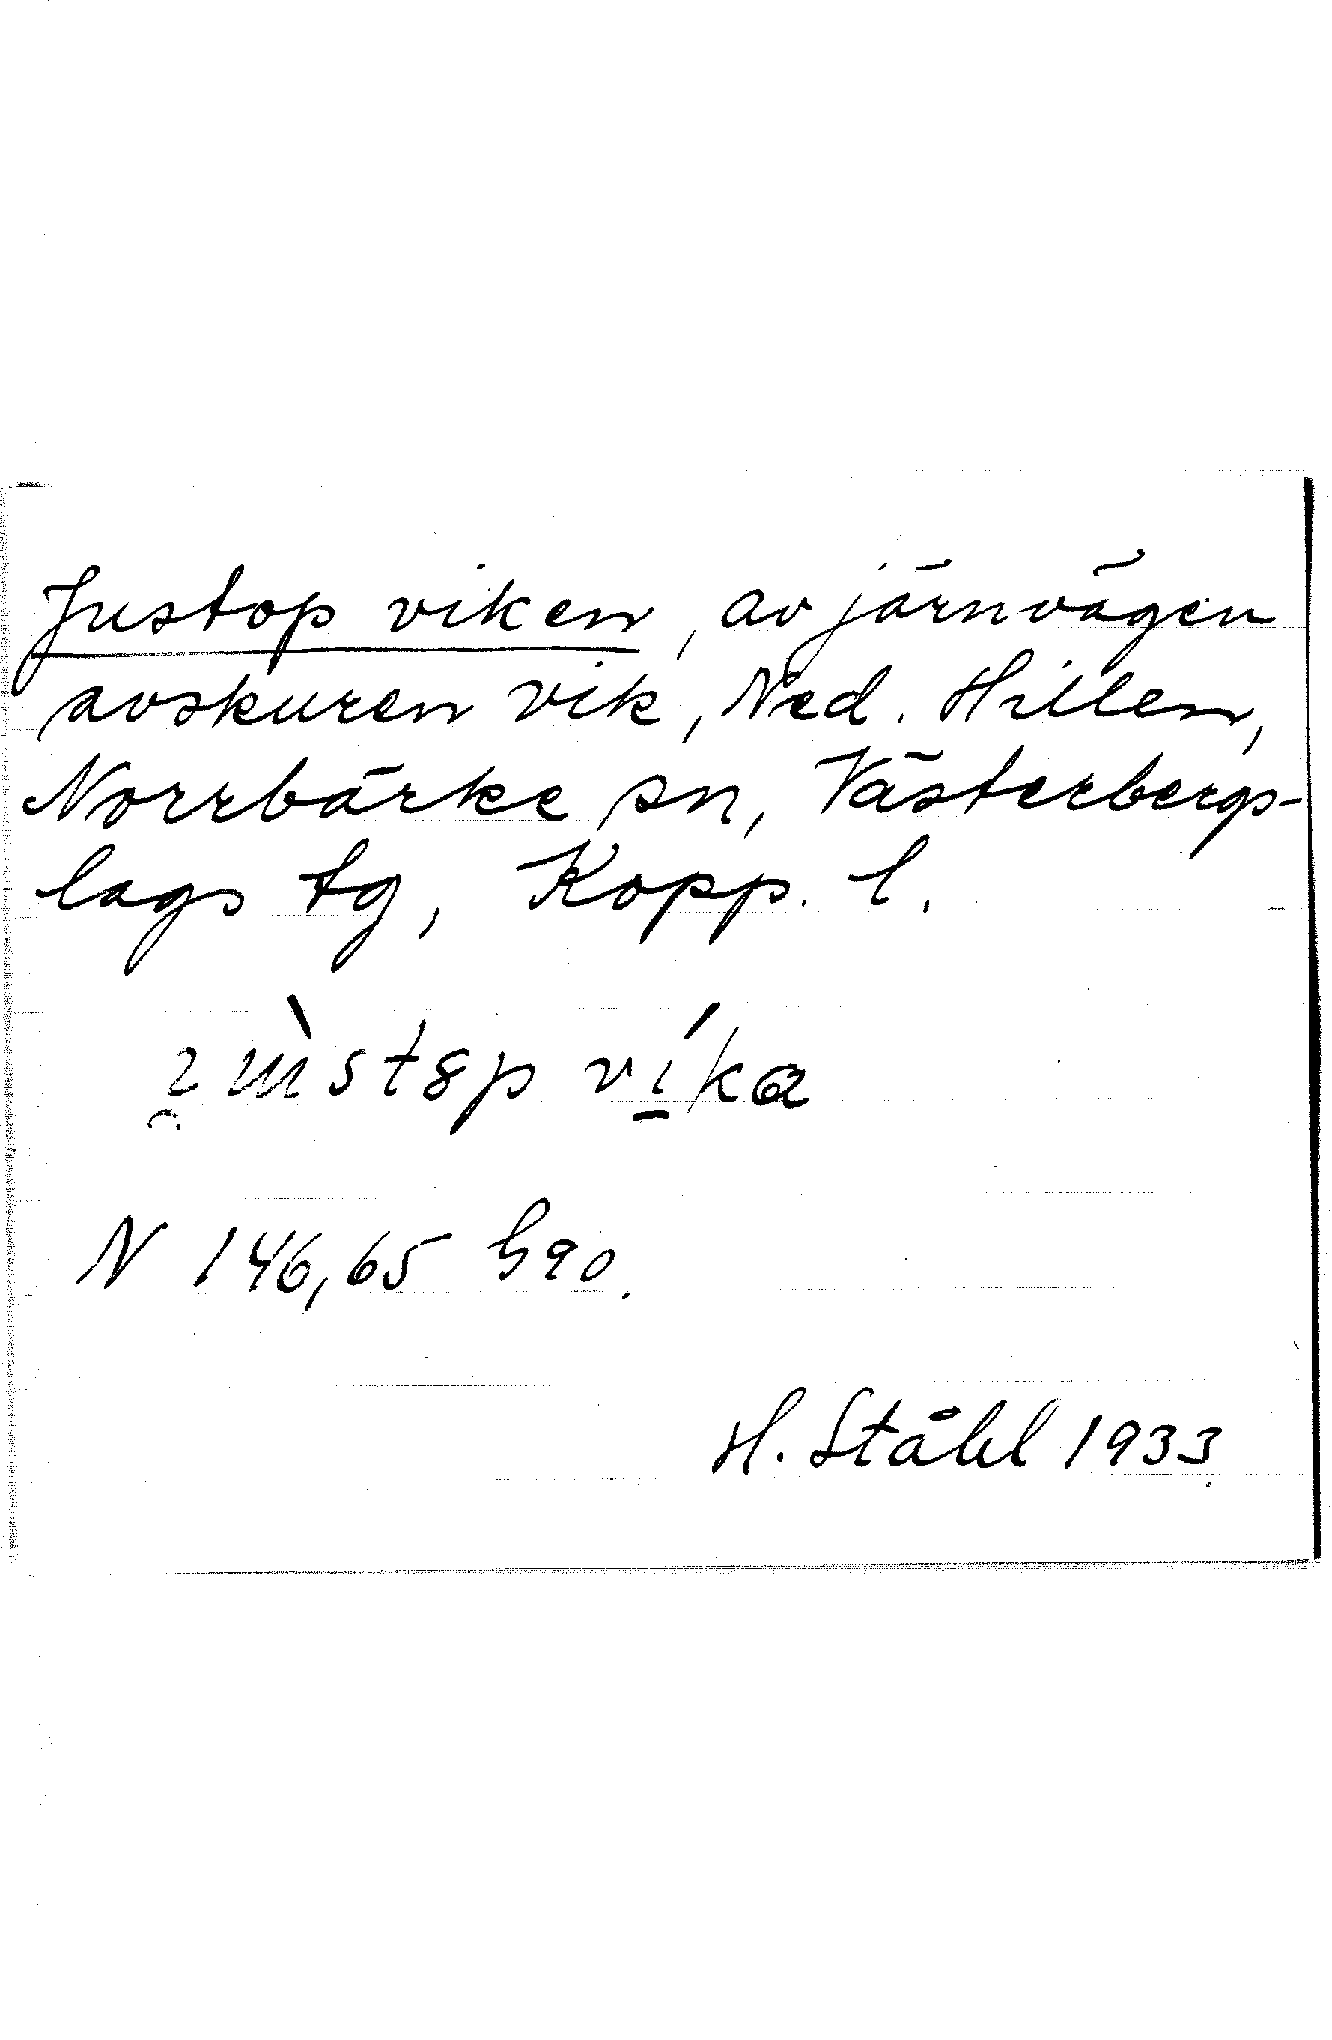 Justop viken, av järnvägen
avskuren vik, Ned. Hillen,
Norrbärke sn, Västerbergs-
lags tg, Kopp. l.
vika
N 146,65 h90.
H. Ståhl 1933